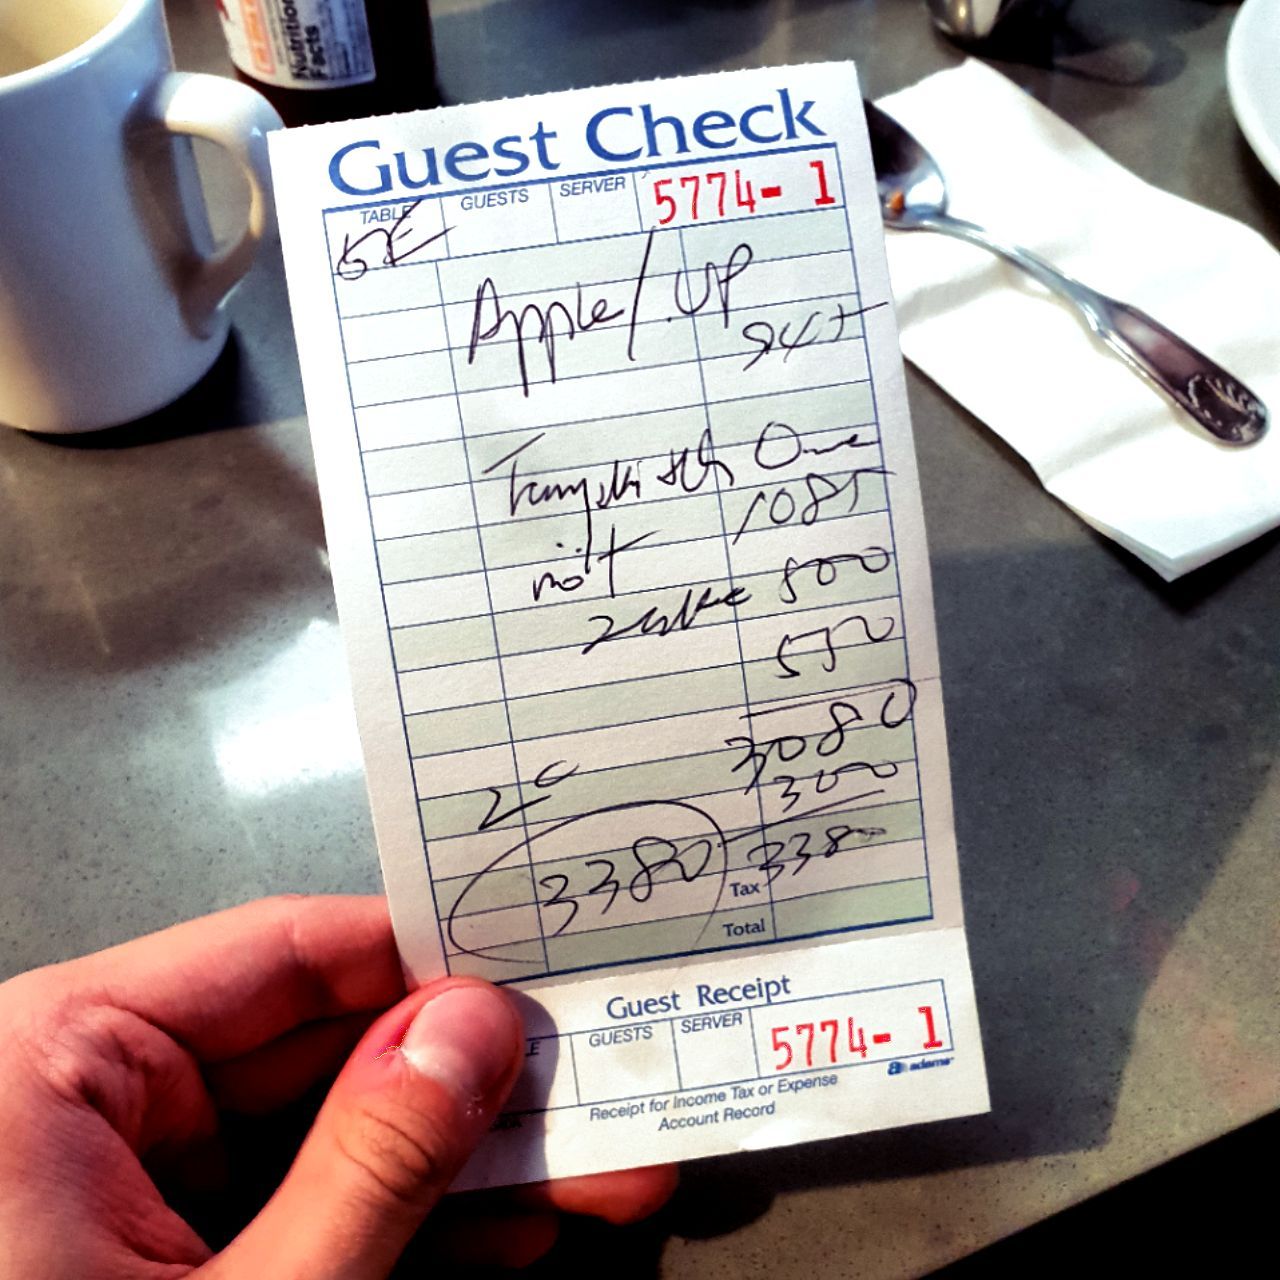 Nutrition
Facts
Guest Check
TABLE GUESTS SERVER 5774- 1
5E
Apple/UP
945
1085
800
550
3080
300
3380 3380
Tax
Total
Guest Receipt
GUESTS SERVER 5774- 1
adams
Receipt for Income Tax or Expense
Account Record